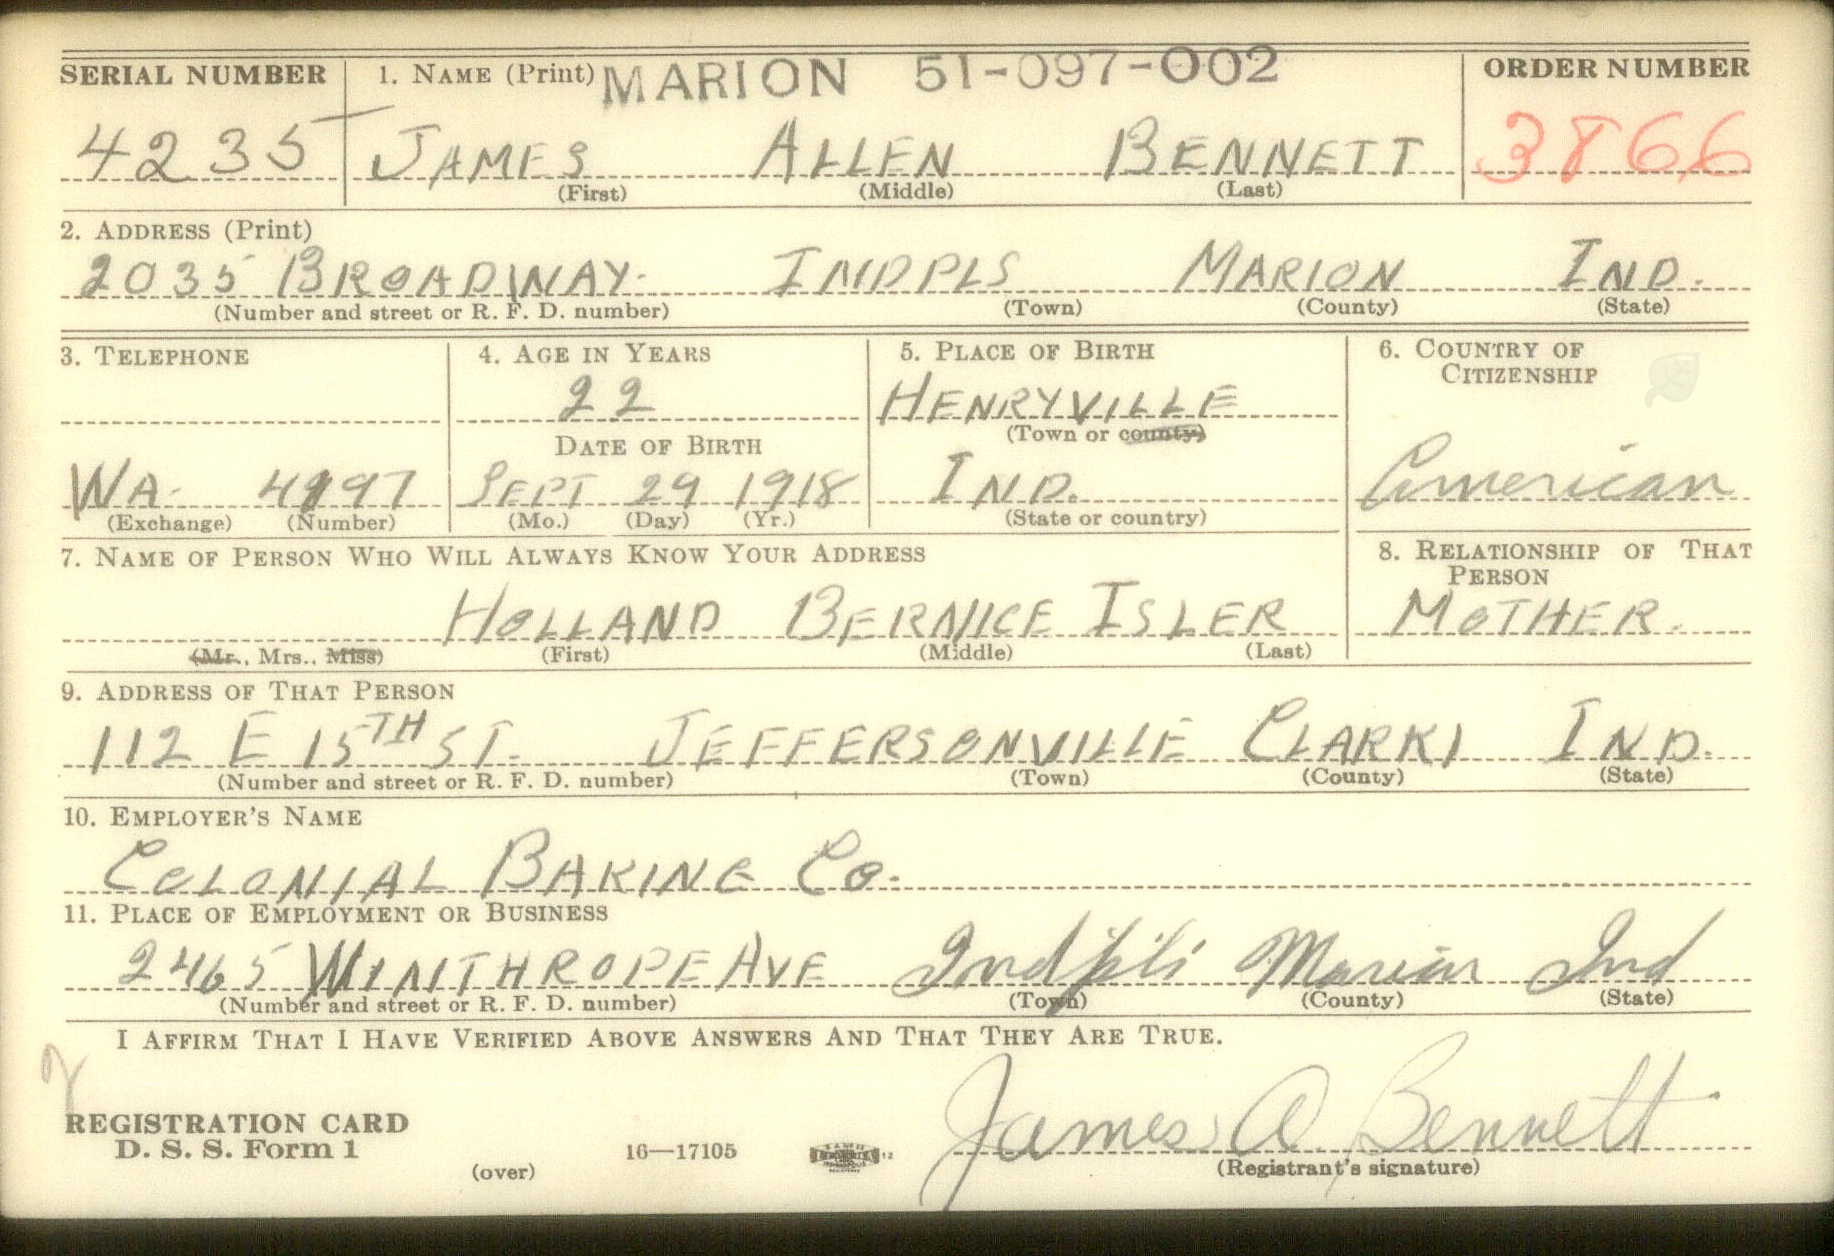 SERIAL NUMBER 1. NAME (Print) MARION 51-097-002 ORDER NUMBER
4235 JAMES ALLEN BENNETT 3866
(First) (Middle) (Last)
2. ADDRESS (Print)
2035 BROADWAY. INDPLS MARION IND.
(Number and street or R. F. D. number) (Town) (County) (State)
3. TELEPHONE 4. AGE IN YEARS 5. PLACE OF BIRTH 6. COUNTRY OF
CITIZENSHIP
22 HENRYVILLE
(Town or county)
DATE OF BIRTH
WA. 4997 SEPT 29 1918 IND. American
(Exchange) (Number) (Mo.) (Day) (Yr.) (State or country)
7. NAME OF PERSON WHO WILL ALWAYS KNOW YOUR ADDRESS 8. RELATIONSHIP OF THAT
PERSON
HOLLAND BERNICE ISLER MOTHER.
(Mr., Mrs., Miss) (First) (Middle) (Last)
9. ADDRESS OF THAT PERSON
112 E 15TH ST. JEFFERSONVILLE CLARK IND.
(Number and street or R. F. D. number) (Town) (County) (State)
10. EMPLOYER'S NAME
COLONIAL BAKING Co.
11. PLACE OF EMPLOYMENT OR BUSINESS
2465 WINTHROPE AVE Indpls Marion Ind
(Number and street or R. F. D. number) (Town) (County) (State)
I AFFIRM THAT I HAVE VERIFIED ABOVE ANSWERS AND THAT THEY ARE TRUE.
REGISTRATION CARD
D. S. S. Form 1 16—17105 12 James A. Bennett
(over) (Registrant's signature)